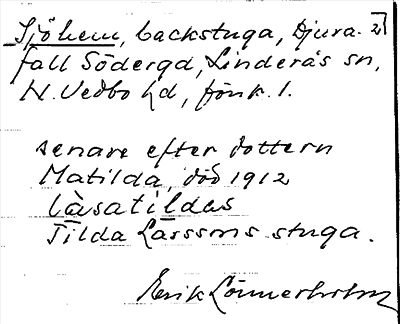 Sjöhem, backstuga, Djura- 2]
fall Södergd, Linderås sn,
N. Vedbo hd, Jönk. l.
senare efter dottern
Matilda, död 1912
Låsatildas
Tilda Larssons stuga.
Erik Lönnerholm